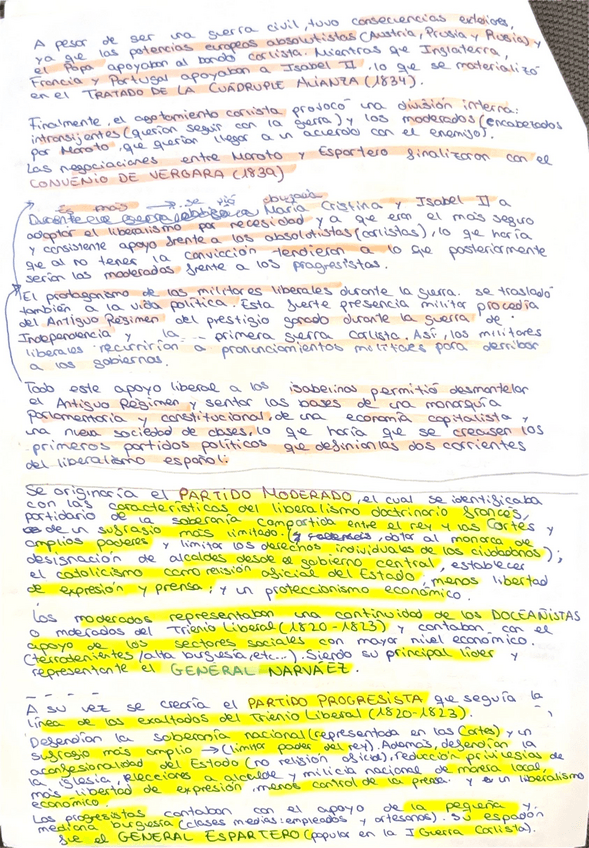 A pesar de ser una guerra civil, tuvo consecuencias exteriores,
ya que las potencias europeas absolutistas (Austria, Prusia y Rusia) y
el Papa apoyaban al bando carlista. Mientras que Inglaterra,
Francia y Portugal apoyaban a Isabel II, lo que se materializó
en el TRATADO DE LA CUÁDRUPLE ALIANZA (1834).
Finalmente, el agotamiento carlista provocó una división interna:
intransijentes (querían seguir con la gerra) y los moderados (encabezados
por Maroto, que querían llegar a un acuerdo con el enemigo).
Las negociaciones entre Maroto y Espartero finalizaron con el
CONVENIO DE VERGARA (1839)
Es más → se vio obligada
Durante Maria Cristina y Isabel II a
adoptar el liberalismo por necesidad ya que eran el más seguro
y consistente apoyo frente a los absolutistas (carlistas), lo que haría
que al no tener la convicción tendieran a lo que posteriormente
serían los moderados frente a los progresistas.
El protagonismo de los militares liberales durante la guerra. se trasladó
también a la vida política. Esta fuerte presencia militar procedía
del Antiguo Régimen del prestigio ganado durante la guerra de
Independencia y la primera guerra carlista. Así, los militares
liberales recurrirían a pronunciamientos militares para derribar
a los gobiernos.
Todo este apoyo liberal a los isabelinos permitió desmantelar
el Antiguo Régimen y sentar las bases de una monarquía
Parlamentaria y constitucional, de una economía capitalista y
una nueva sociedad de clases, lo que haría que se creasen los
primeros partidos políticos que definían las dos corrientes
del liberalismo español:
Se originaría el PARTIDO MODERADO, el cual se identificaba
con las características del liberalismo doctrinario francés,
partidario de la soberanía compartida entre el rey y las Cortes y
de un sufragio más limitado. (dotar al monarca de
amplios poderes y limitar los derechos individuales de los ciudadanos);
designación de alcaldes desde el gobierno central, establecer
el catolicismo como religión oficial del Estado, menos libertad
de expresión y prensa; y un proteccionismo económico.
Los moderados representaban una continuidad de los DOCEAÑISTAS
o moderados del Trienio Liberal (1820-1823) y contaban con el
apoyo de los sectores sociales con mayor nivel económico.
(terratenientes, alta burguesía, etc...), Siendo su principal líder y
representante el GENERAL NARVAEZ.
A su vez se crearía el PARTIDO PROGRESISTA que seguía la
línea de los exaltados del Trienio Liberal (1820-1823).
Defendían la soberanía nacional (representada en las Cortes) y un
sufragio más amplio → (limitar poder del rey). Además, defendían la
aconfesionalidad del Estado (no religión oficial), reducción privilegios de
la iglesia, elecciones a alcalde y milicia nacional de manera local,
más libertad de expresión, menos control de la prensa. y un liberalismo
económico.
Los progresistas contaban con el apoyo de la pequeña y
mediana burguesía (clases medias: empleados y artesanos). Su espadón
fue el GENERAL ESPARTERO (popular en la I Guerra Carlista).